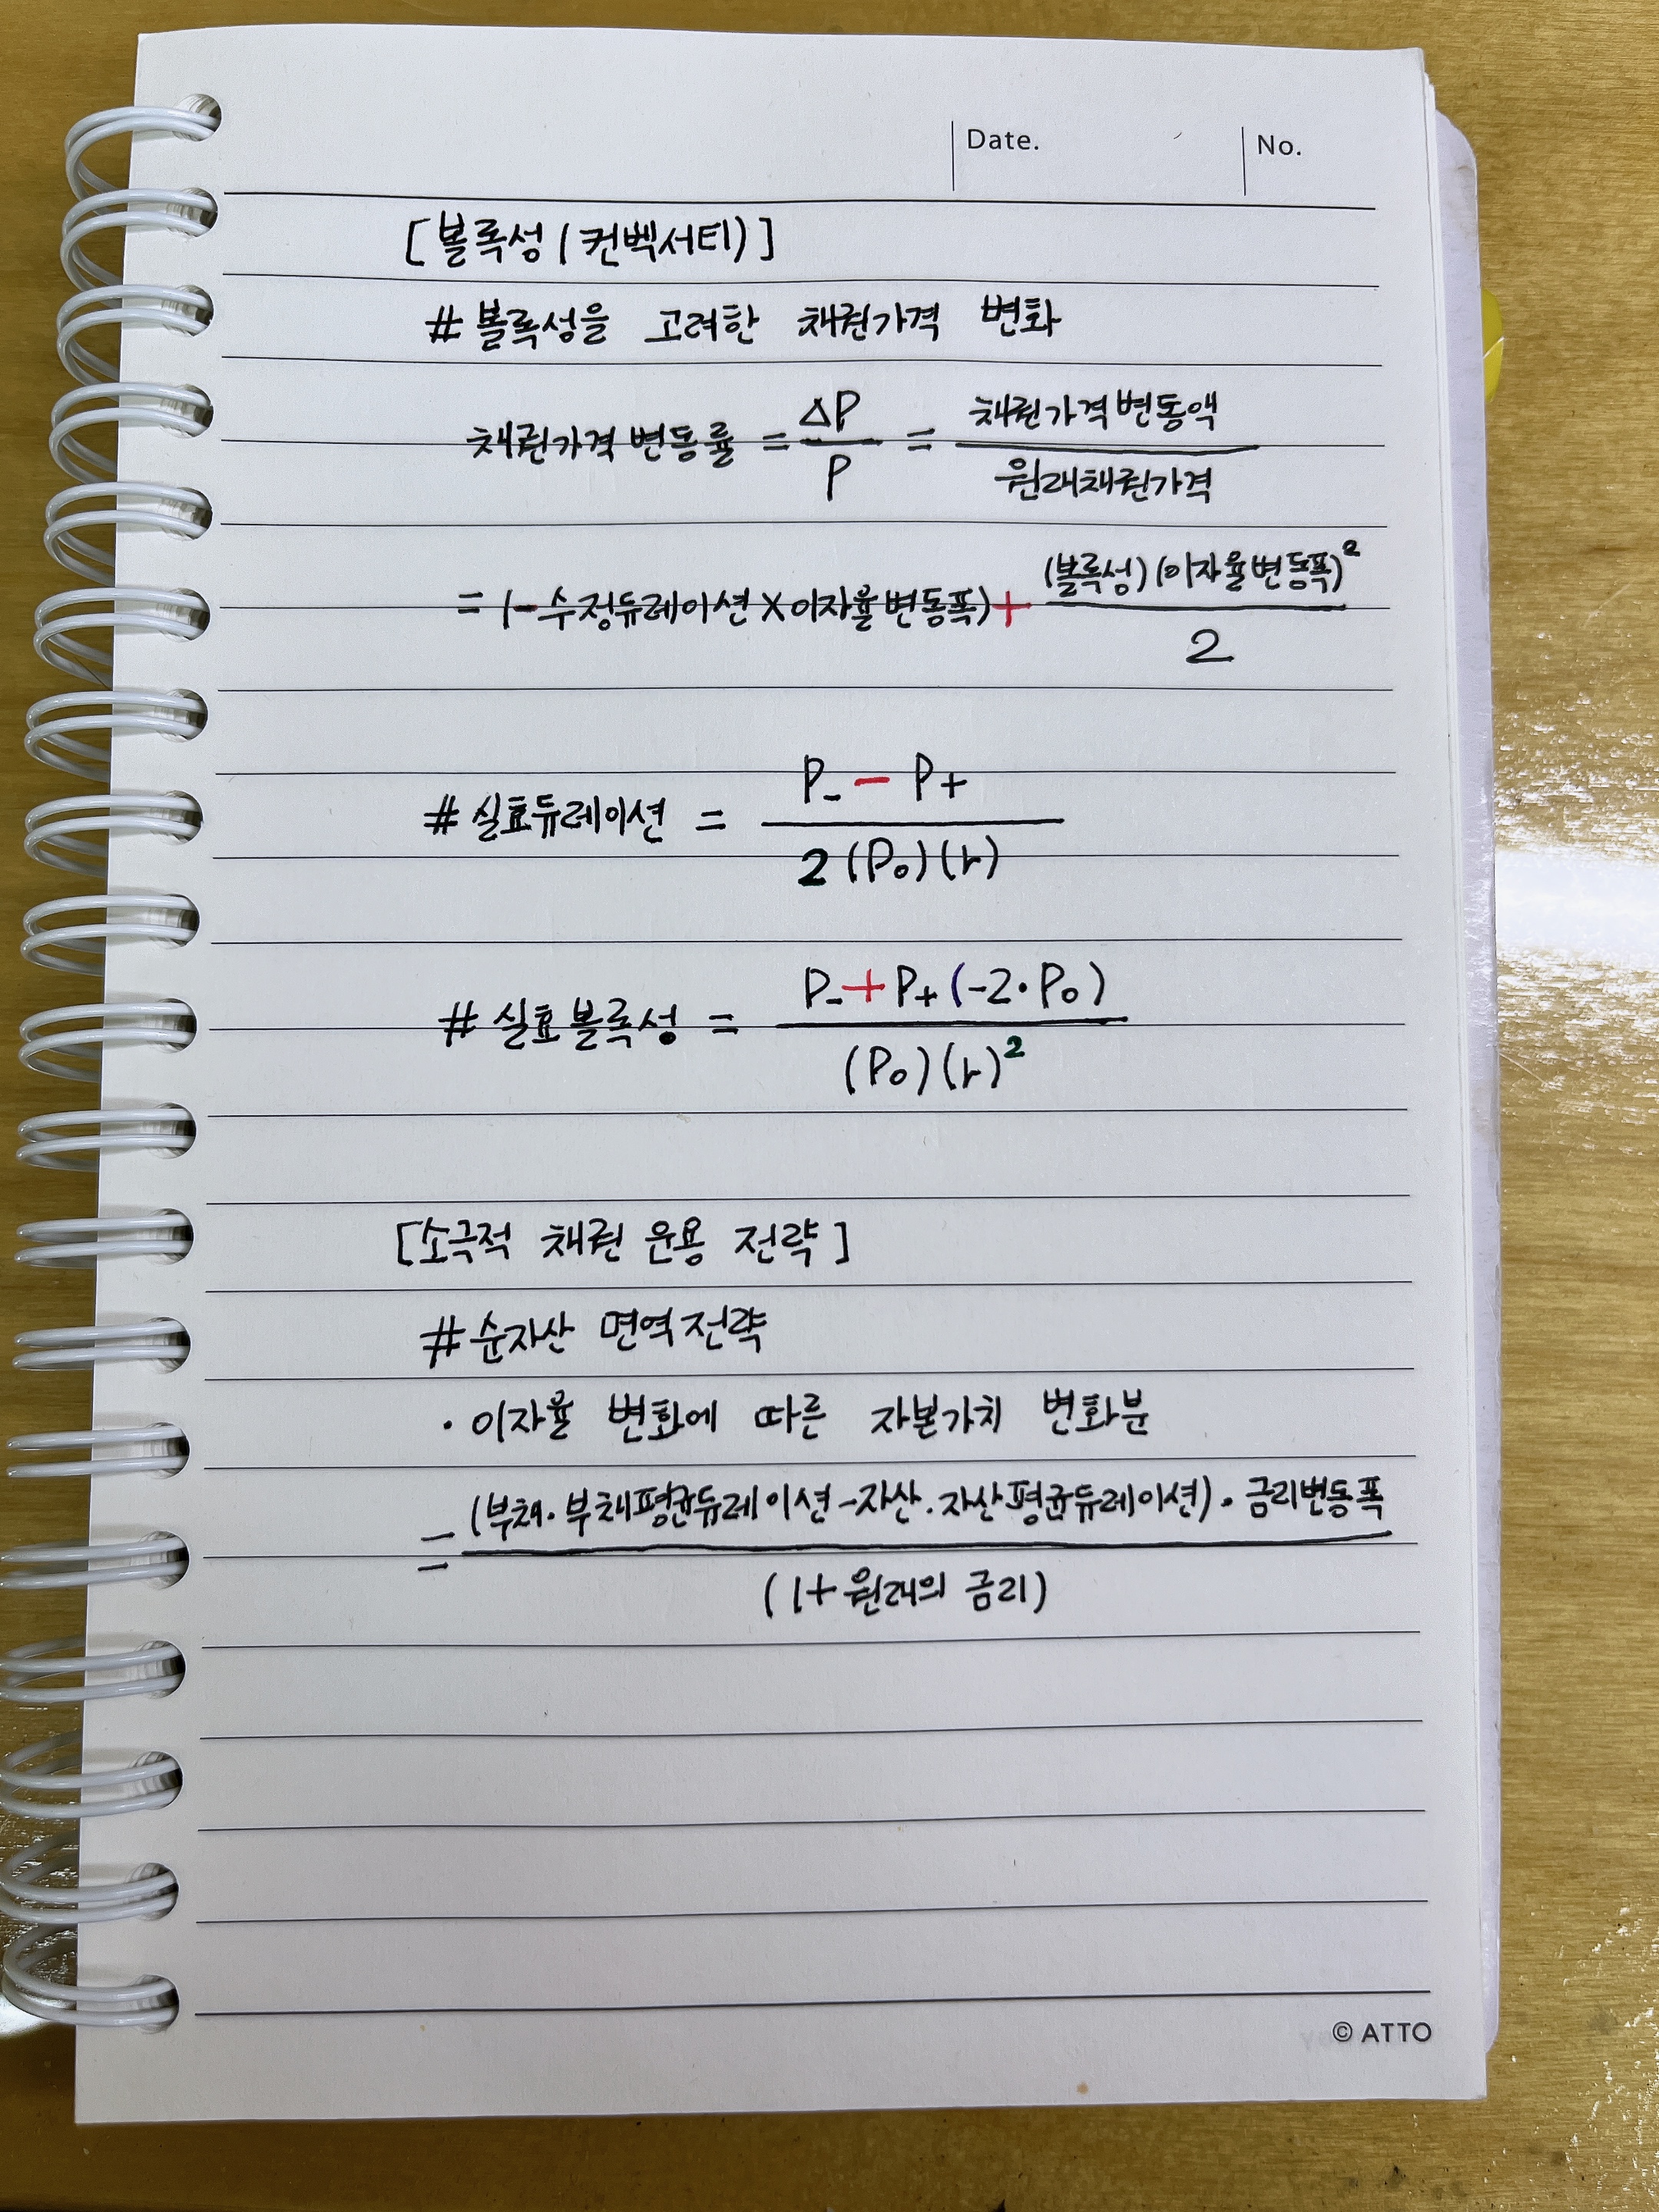 Date.
No.
[볼록성(컨벡서티)]
# 볼록성을 고려한 채권가격 변화
채권가격변동률 = ΔP / P = 채권가격변동액 / 원래채권가격
= (-수정듀레이션×이자율변동폭) + (볼록성)(이자율변동폭)² / 2
# 실효듀레이션 = P₋ - P₊ / 2(P₀)(r)
# 실효볼록성 = P₋ + P₊(-2·P₀) / (P₀)(r)²
[소극적 채권 운용 전략]
# 순자산 면역전략
· 이자율 변화에 따른 자본가치 변화분
= (부채·부채평균듀레이션-자산·자산평균듀레이션)·금리변동폭 / (1+원래의 금리)
© ATTO